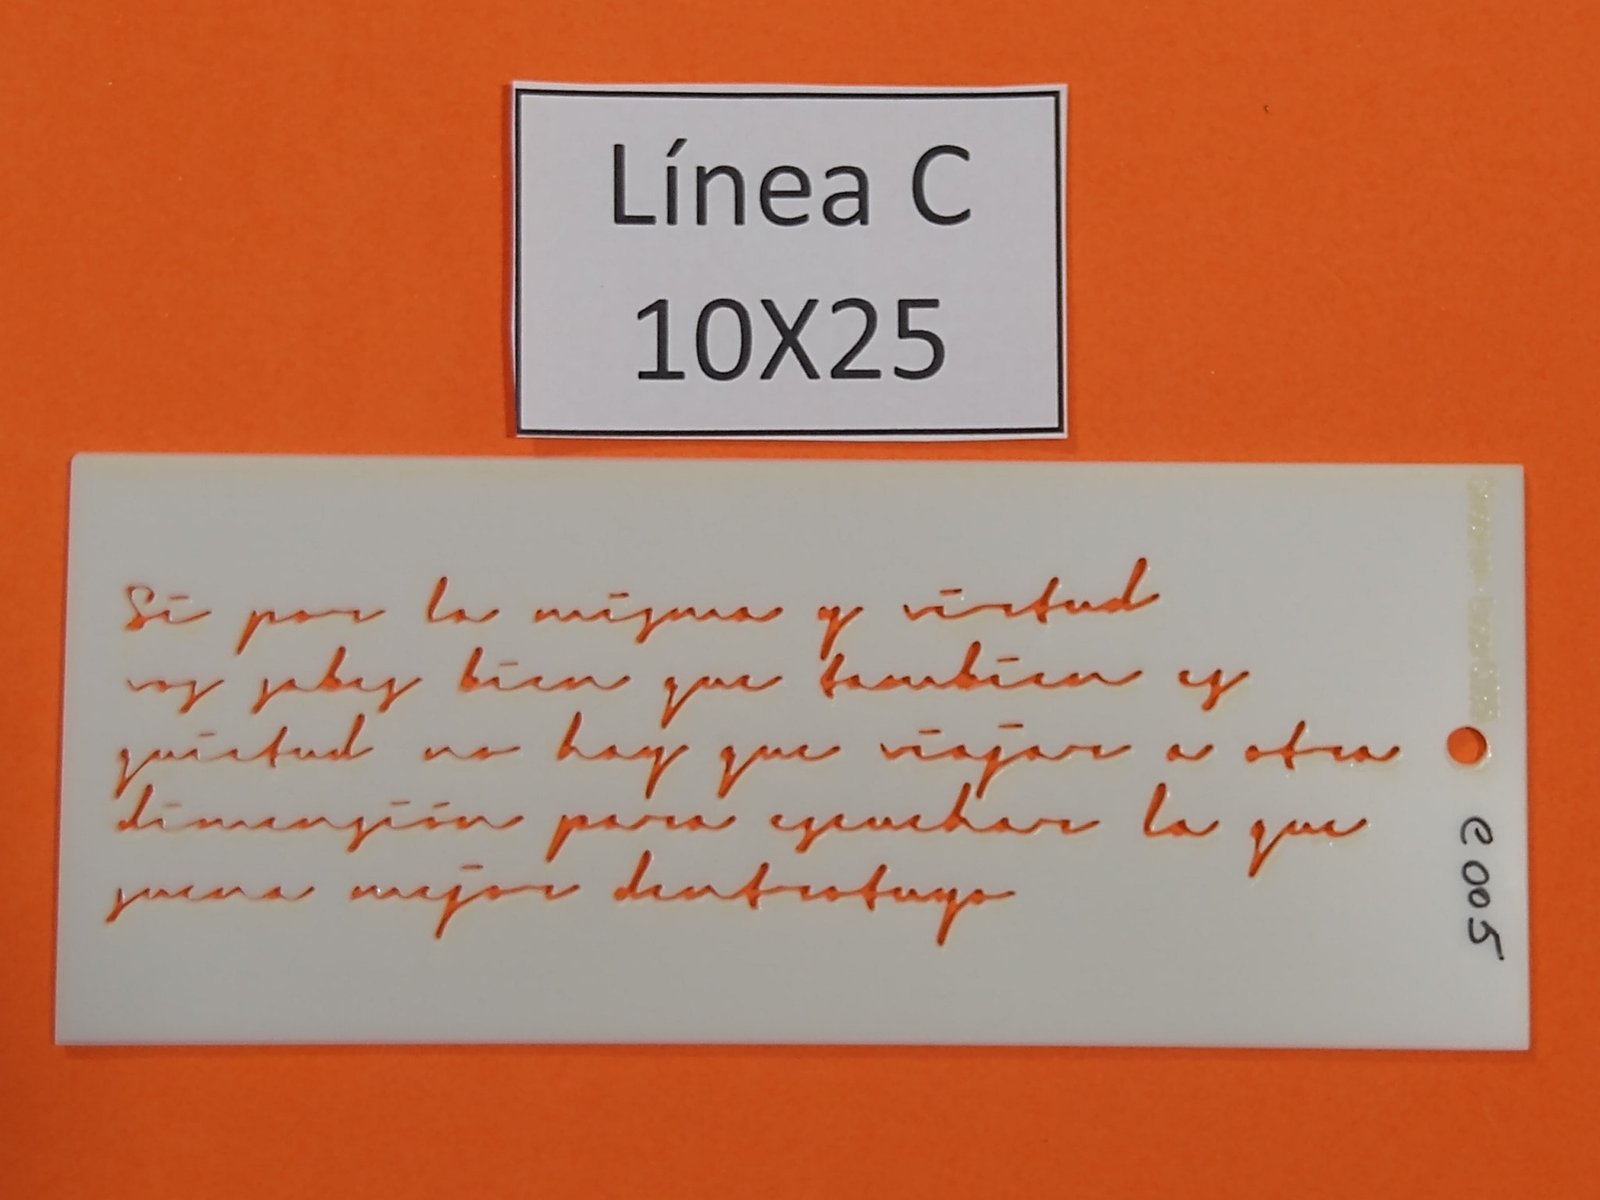 Línea C
10X25
Si por la misma y virtud
vos sabes bien que tambien es
quietud no hay que viajar a otra
dimensión para escuchar la que
suena mejor dentrotuyo
C005